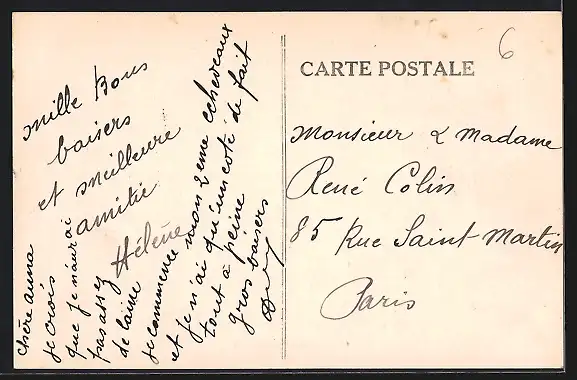 mille bons
baisers
et meilleure
amitié
Hélène
chère anna
je crois
que je n'aurai
pas assez
de laine
je commence mon 2eme echeveaux
et je n'ai qu'un coté de fait
tout a peine
gros baisers
6
CARTE POSTALE
Monsieur & Madame
René Colin
85 Rue Saint Martin
Paris